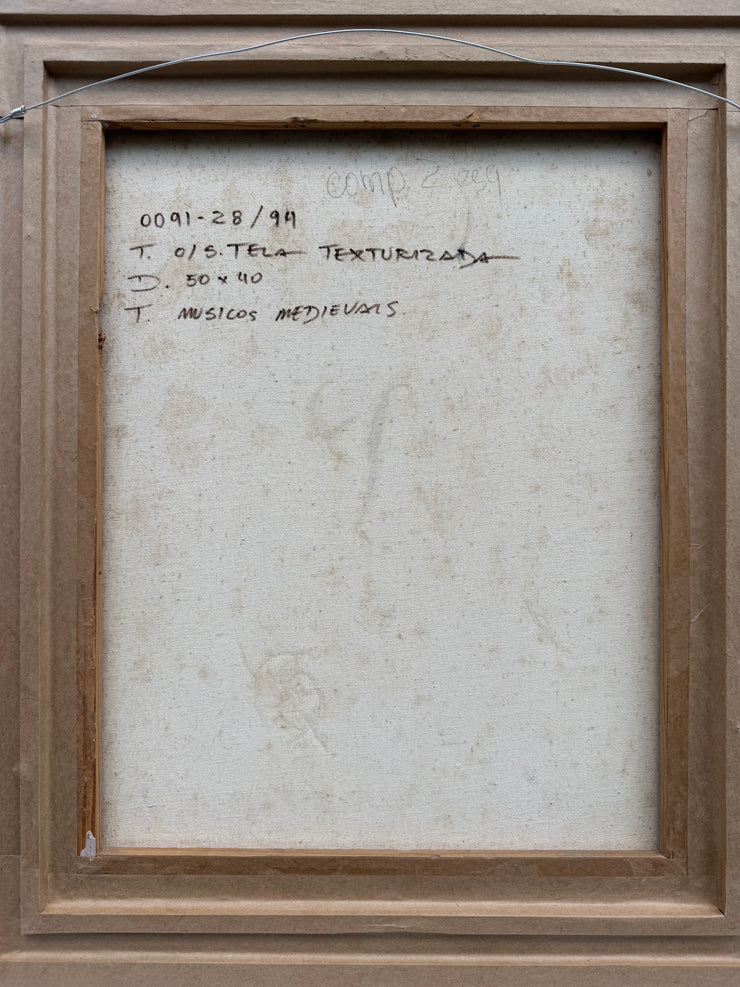 comp 2 esq
0091-28/94
T. O/S. TELA TEXTURIZADA
D. 50x40
T. MUSICOS MEDIEVAIS.